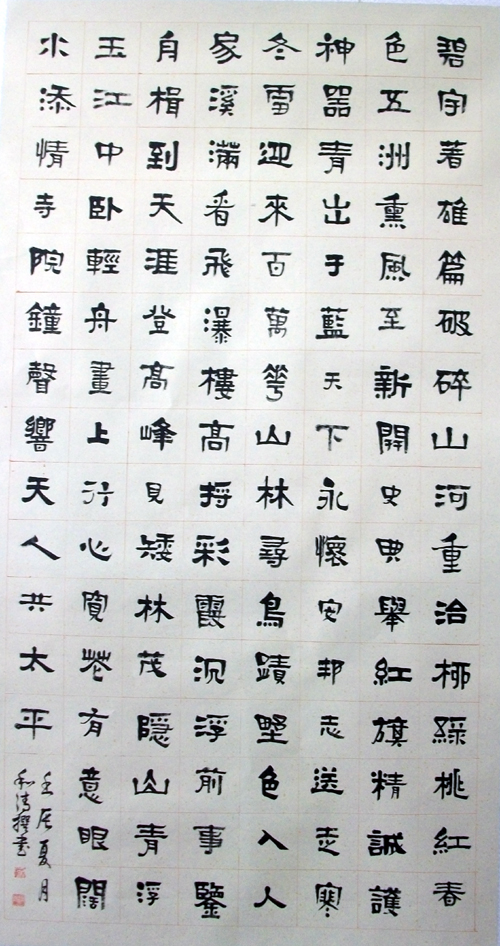 碧宇著雄篇破碎山河重治柳綠桃紅春
色五洲熏風至新開史典舉紅旗精誠護
神器青出于藍天下永懷安邦志送走寒
冬雪迎來百萬華山林尋鳥蹟野色入人
家溪滿看飛瀑樓高捋彩霞沉浮前事鑒
自楫到天涯登高峰見矮林茂隱山青浮
玉江中臥輕舟畫上行心寬花有意眼闊
水添情寺院鐘聲響天人共太平
壬辰夏月
清撰書